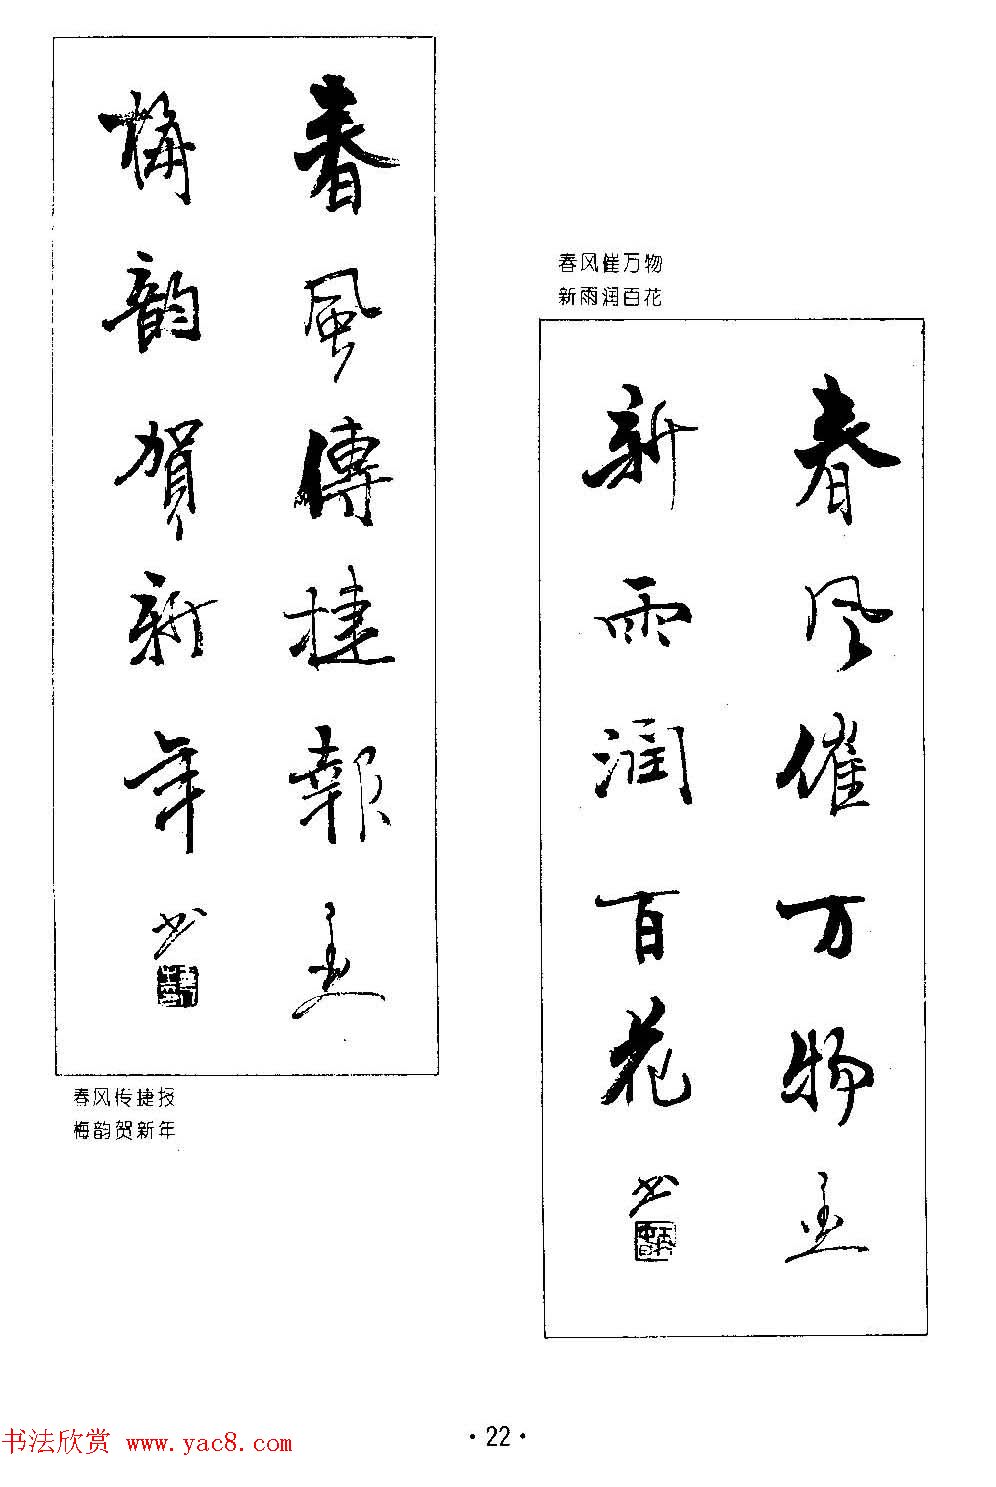 春風傳捷報
梅韵賀新年
书
春风传捷报
梅韵贺新年
春风催万物
新雨润百花
春风催万物
新雨润百花
书
·22·
书法欣赏 www.yac8.com